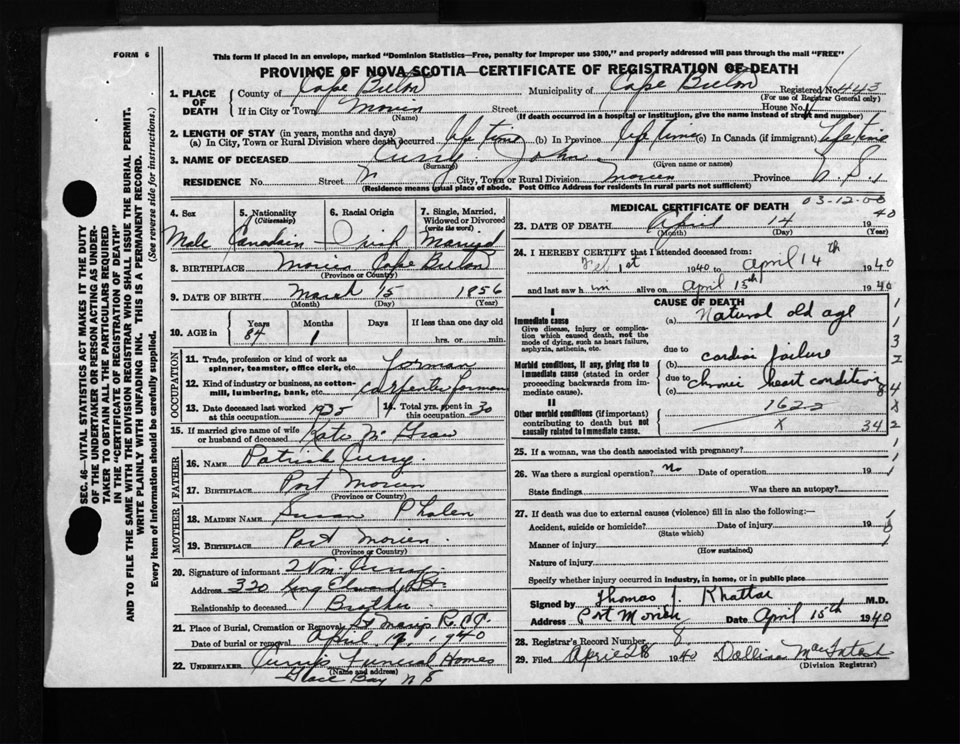 FORM 6
This form if placed in an envelope, marked "Dominion Statistics—Free, penalty for improper use $300," and properly addressed will pass through the mail "FREE"
PROVINCE OF NOVA SCOTIA—CERTIFICATE OF REGISTRATION OF DEATH
1. PLACE OF DEATH County of Cape Breton Municipality of Cape Breton Registered No. 443
(For use of Registrar General only)
If in City or Town Morien Street House No.
(Name) (If death occurred in a hospital or institution, give the name instead of street and number)
2. LENGTH OF STAY (in years, months and days)
(a) In City, Town or Rural Division where death occurred life time (b) In Province life time (c) In Canada (if immigrant) life time
3. NAME OF DECEASED Curry John
(Surname) (Given name or names)
RESIDENCE No. Street City, Town or Rural Division Morien Province N.S.
(Residence means usual place of abode. Post Office Address for residents in rural parts not sufficient)
SEC. 46—VITAL STATISTICS ACT MAKES IT THE DUTY
OF THE UNDERTAKER OR PERSON ACTING AS UNDER-
TAKER TO OBTAIN ALL THE PARTICULARS REQUIRED
IN THE "CERTIFICATE OF REGISTRATION OF DEATH"
AND TO FILE THE SAME WITH THE DIVISION REGISTRAR WHO SHALL ISSUE THE BURIAL PERMIT.
WRITE PLAINLY WITH UNFADING INK. THIS IS A PERMANENT RECORD.
Every item of information should be carefully supplied. (See reverse side for instructions.)
4. Sex 5. Nationality (Citizenship) 6. Racial Origin 7. Single, Married, Widowed or Divorced (write the word)
Male Canadain Irish Married
8. BIRTHPLACE Morien Cape Breton
(Province or County)
9. DATE OF BIRTH March 15 1856
(Month) (Day) (Year)
10. AGE in Years Months Days If less than one day old
84 1 hrs. or min.
OCCUPATION
11. Trade, profession or kind of work as spinner, teamster, office clerk, etc. forman
12. Kind of industry or business, as cotton-mill, lumbering, bank, etc. carpenter forman
13. Date deceased last worked at this occupation 1935 14. Total yrs. spent in this occupation 30
15. If married give name of wife or husband of deceased Kate McGraw
FATHER
16. NAME Patrick Curry
17. BIRTHPLACE Port Morien
(Province or County)
MOTHER
18. MAIDEN NAME Susan Phalen
19. BIRTHPLACE Port Morien
(Province or Country)
20. Signature of informant Wm. Curry
Address 320 King Edward St.
Relationship to deceased Brother
21. Place of Burial, Cremation or Removal St Marys R.C.
Date of burial or removal April 1940
22. UNDERTAKER Currys Funeral Homes
(Name and address)
Glace Bay N S
MEDICAL CERTIFICATE OF DEATH
03-12-00
23. DATE OF DEATH April 14 1940
(Month) (Day) (Year)
24. I HEREBY CERTIFY that I attended deceased from:
Feb 1st 1940 to April 14th 1940
and last saw him alive on April 15th 1940
CAUSE OF DEATH
I
Immediate cause (a) Natural old age
Give disease, injury or complication which caused death, not the mode of dying, such as heart failure, asphyxia, asthenia, etc.
due to
Morbid conditions, if any, giving rise to immediate cause (stated in order proceeding backwards from immediate cause). (b) cardiac failure
due to
(c) chronic heart condition
II
Other morbid conditions (if important) contributing to death but not causally related to immediate cause.
162
34
25. If a woman, was the death associated with pregnancy?
26. Was there a surgical operation? No Date of operation 19
State findings Was there an autopsy?
27. If death was due to external causes (violence) fill in also the following:—
Accident, suicide or homicide? Date of injury 19
(State which)
Manner of injury
(How sustained)
Nature of injury
Specify whether injury occurred in industry, in home, or in public place
Signed by Thomas J. Khattar M.D.
Address Port Morien Date April 15th 1940
28. Registrar's Record Number 8
29. Filed April 28 1940 MacIntosh
(Division Registrar)